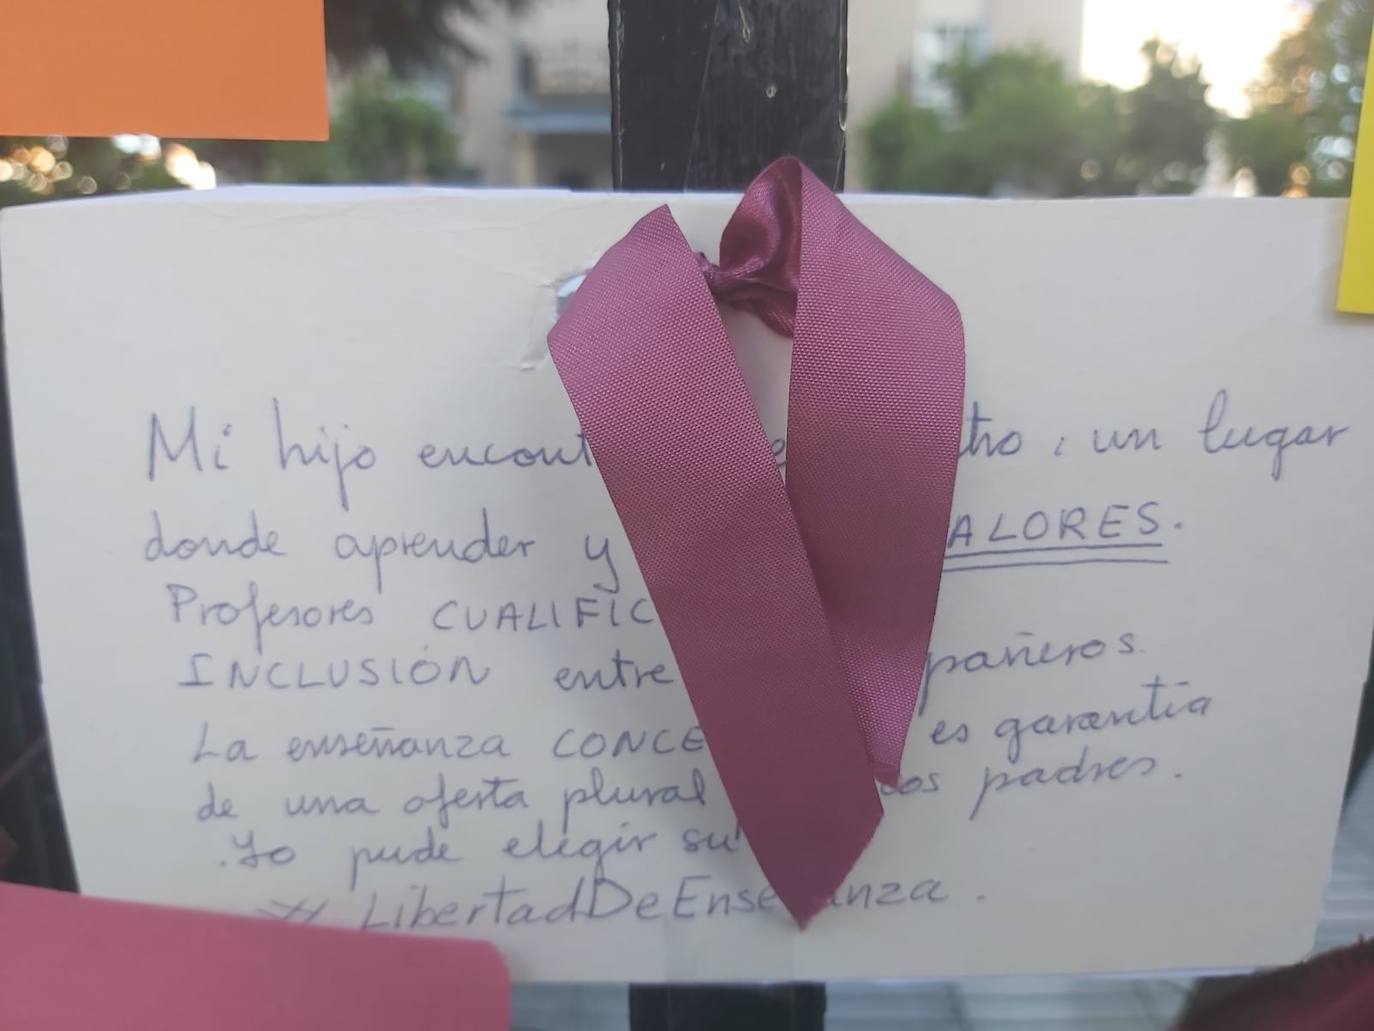 Mi hijo encont tro, un lugar
donde aprender y ALORES.
Profesores CUALIFIC
INCLUSIÓN entre pañeros.
La enseñanza CONCE es garantía
de una oferta plural los padres.
.Yo pude elegir su
# LibertadDeEnse anza.